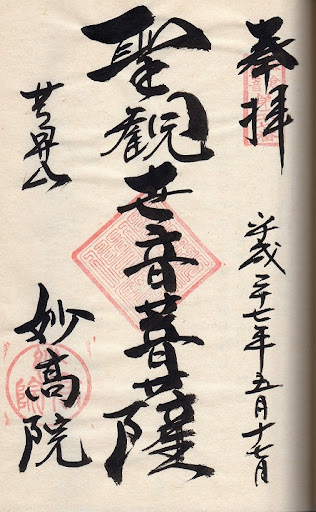 奉拝
平成二十七年五月十七日
聖観世音菩薩
妙高院